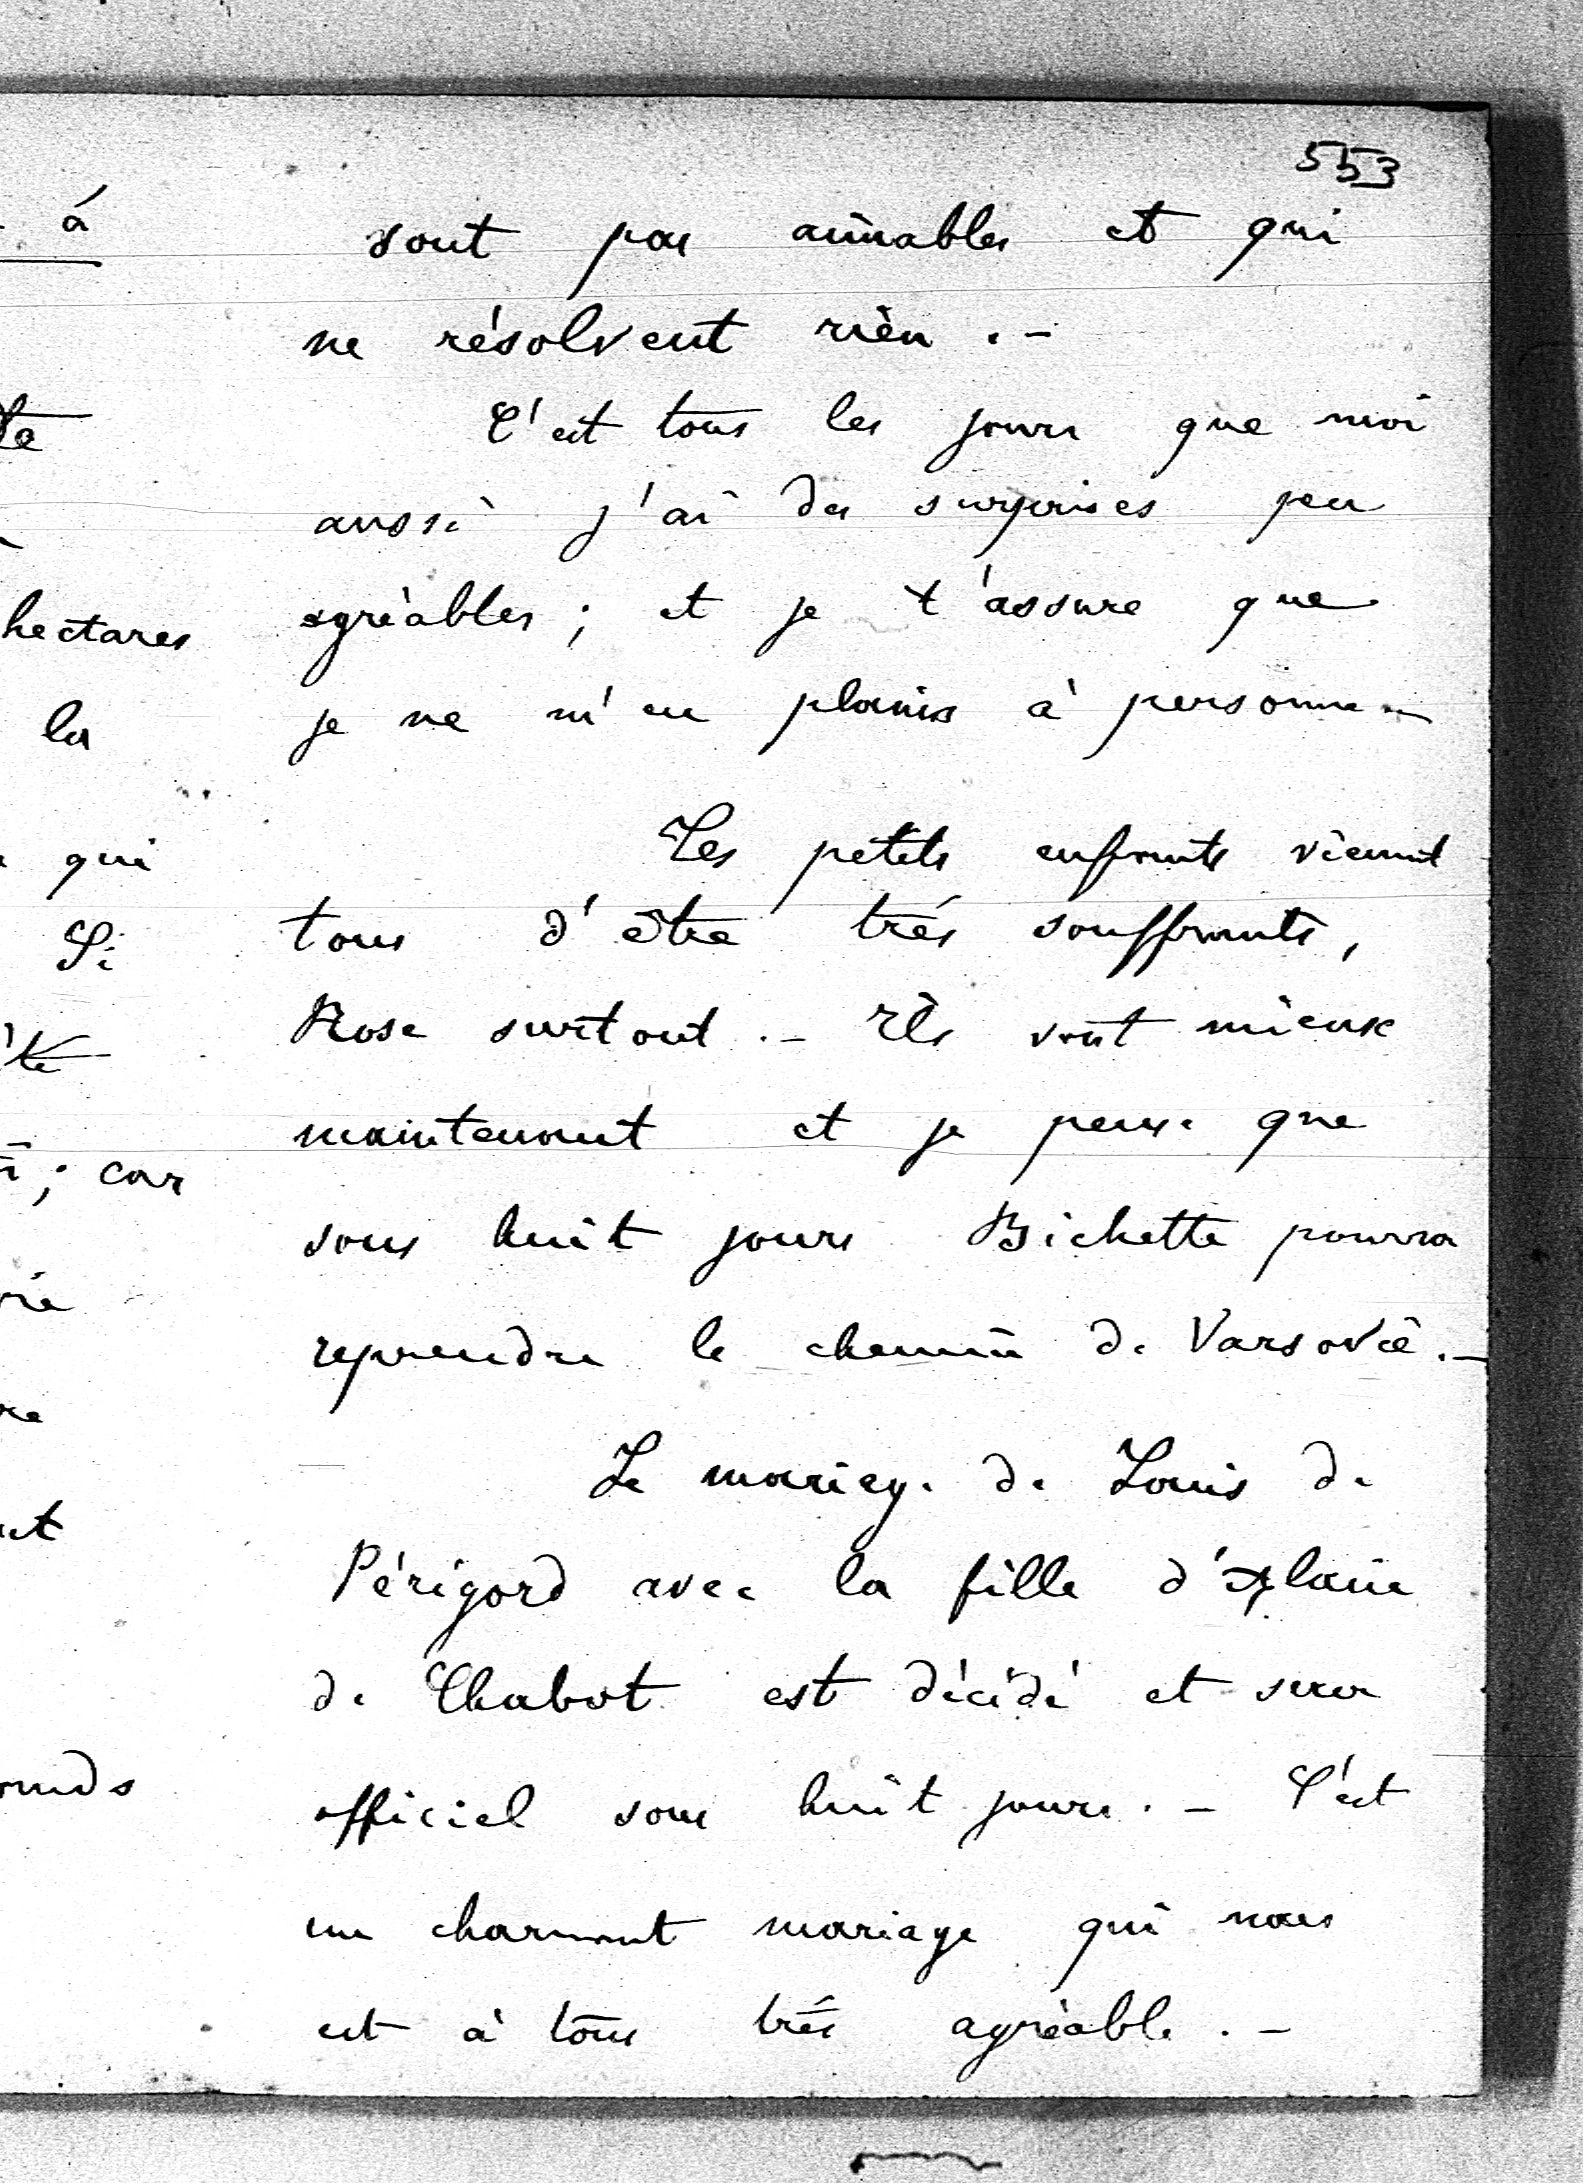 553
sont pas aimables et qui
ne résolvent rien . -
C'est tous les jours que moi
aussi j'ai des surprises peu
agréables ; et je t'assure que
je ne m'en plains à personne -
Les petits enfants viennent
tous d'être très souffrants,
Rose surtout . - Ils vont mieux
maintenant et je pense que
sous huit jours Bichette pourra
reprendre le chemin de Varsovie . -
Le mariage de Louis de
Périgord avec la fille d'
de Chabot est décidé et sera
officiel sous huit jours . - C'est
un charmant mariage qui nous
est à tous très agréable . -
à
hectares
la
qui
Si
; car